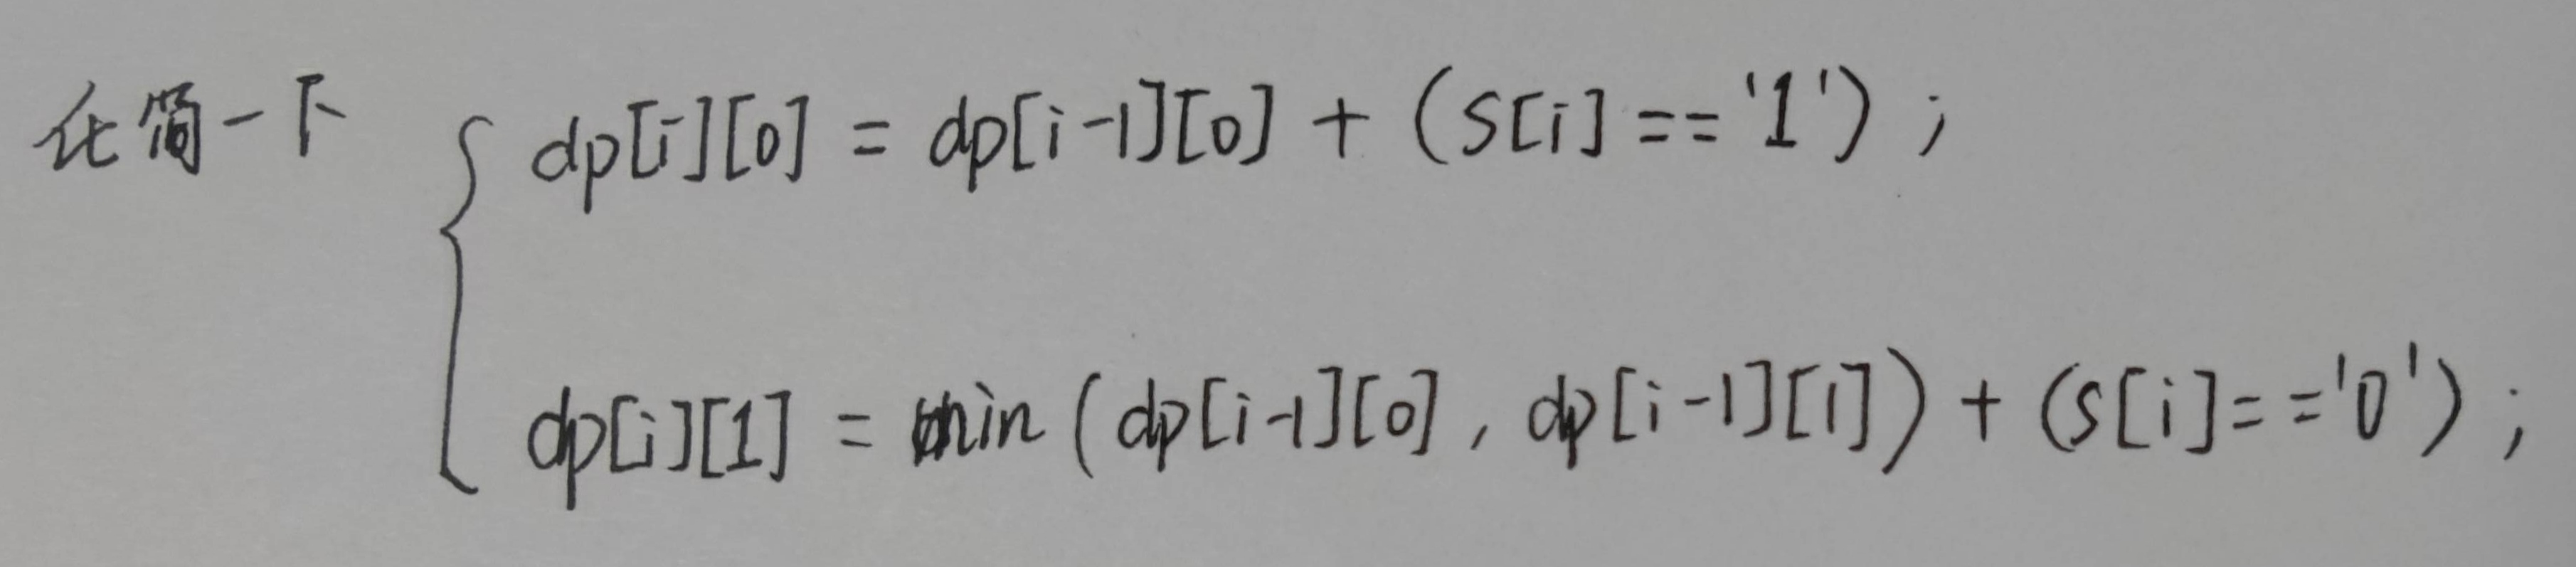 化简一下 { dp[i][0] = dp[i-1][0] + (S[i] == '1') ;
dp[i][1] = min (dp[i-1][0] , dp[i-1][1]) + (S[i] == '0') ;